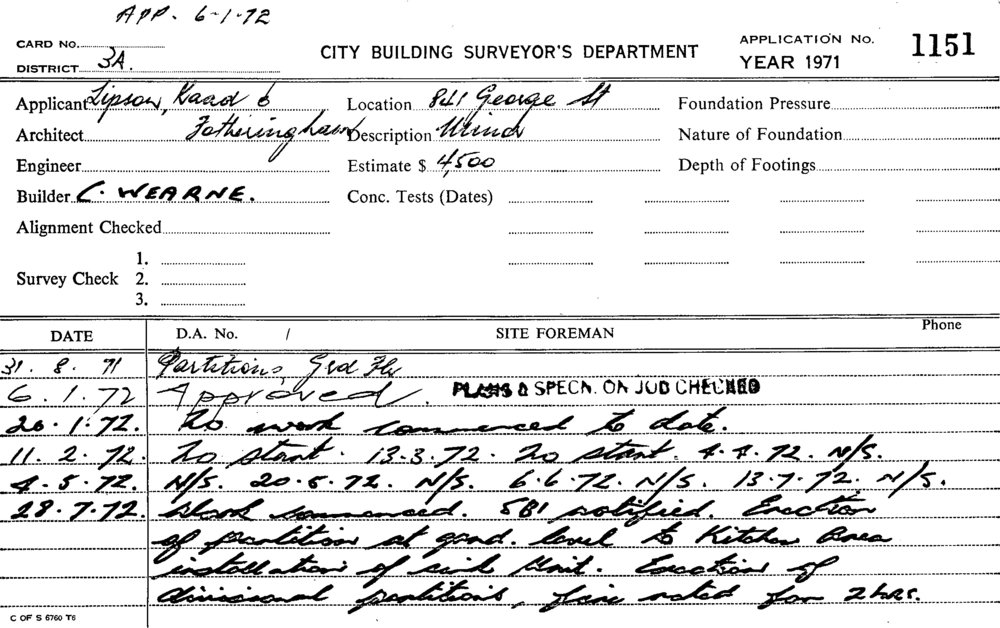 APP. 6-1-72
CARD No.
DISTRICT 3A.
CITY BUILDING SURVEYOR'S DEPARTMENT
APPLICATION No. 1151
YEAR 1971
Applicant Lipson, Kaad & Location 841 George St Foundation Pressure
Architect Fotheringham Description Nature of Foundation
Engineer Estimate $ 4,500 Depth of Footings
Builder C. WEARNE. Conc. Tests (Dates)
Alignment Checked
1.
Survey Check 2.
3.
DATE D.A. No. / SITE FOREMAN Phone
31. 8. 71 Partitions, Grd Flr
6. 1. 72 Approved. PLANS & SPECN. ON JOB CHECKED
26.1.72. No work commenced to date.
11. 2. 72. No start. 13.3.72. No start. 4.4.72. N/S.
4.5.72. N/S. 20.5.72. N/S. 6.6.72. N/S. 13.7.72. N/S.
28.7.72. Work commenced. SBI notified. Erection
of partition at grnd. level to Kitchen Area
installation of sink Unit. Erection of
divisional partitions, fire rated for 2 hrs.
C OF S 6760 T6